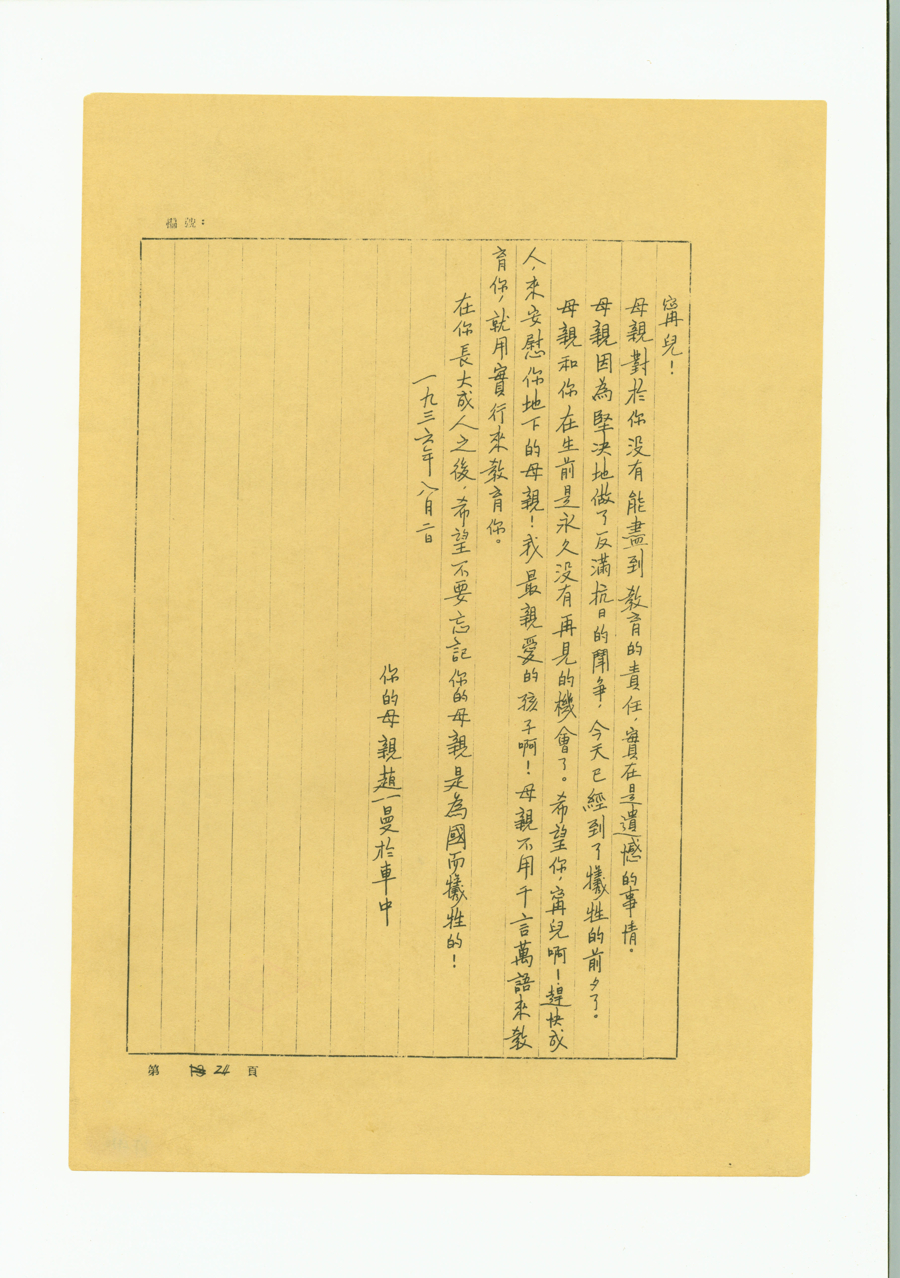 編號：
寗兒！
母親對於你没有能盡到教育的責任，實在是遺憾的事情。
母親因為堅决地做了反滿抗日的鬥争，今天已經到了犧牲的前夕了。
母親和你在生前是永久没有再見的機會了。希望你，寗兒啊！趕快成
人，來安慰你地下的母親！我最親愛的孩子啊！母親不用千言萬語來教
育你，就用實行來教育你。
在你長大成人之後，希望不要忘記你的母親是為國而犧牲的！
一九三六年八月二日
你的母親趙一曼於車中
第 24 頁